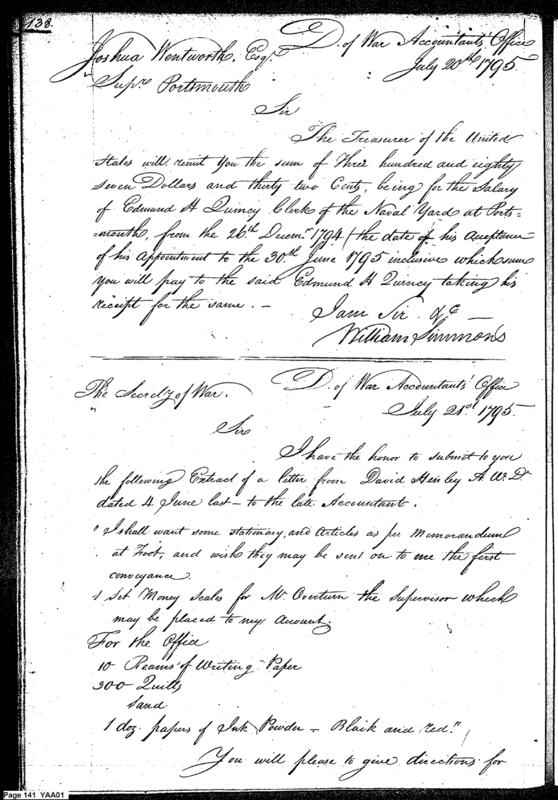 138.
Joshua Wentworth, Esqr. D. of War Accountants Office
Supr. Portsmouth July 20th 1795
Sir
The Treasurer of the United
States will remit you the sum of Three hundred and eighty
Seven Dollars and thirty two Cents, being for the Salary
of Edmund H Quincy Clerk of the Naval Yard at Ports-
=mouth, from the 26th Decemr. 1794 (the date of his Acceptance
of his Appointment to the 30th June 1795 inclusive which sum
You will pay to the said Edmund H Quincy taking his
receipt for the same. —
I am Sir &c —
William Simmons
The Secrety of War. D. of War Accountants Office
July 21st 1795
Sir
I have the honor to submit to you
the following Extract of a letter from David Henley A. W. D.
dated 4 June last - to the late Accountant.
" I shall want some stationary, and Articles as per Memorandum
at Foot, and wish they may be sent on to me the first
conveyance.
1 Set Money Scales for Mr. Overturn the Supervisor which
may be placed to my Account.
For the Office
10 Reams of Writing Paper
300 Quills
Sand
1 doz. papers of Ink Powder - Black and red."
You will please to give directions for
Page 141 YAA01